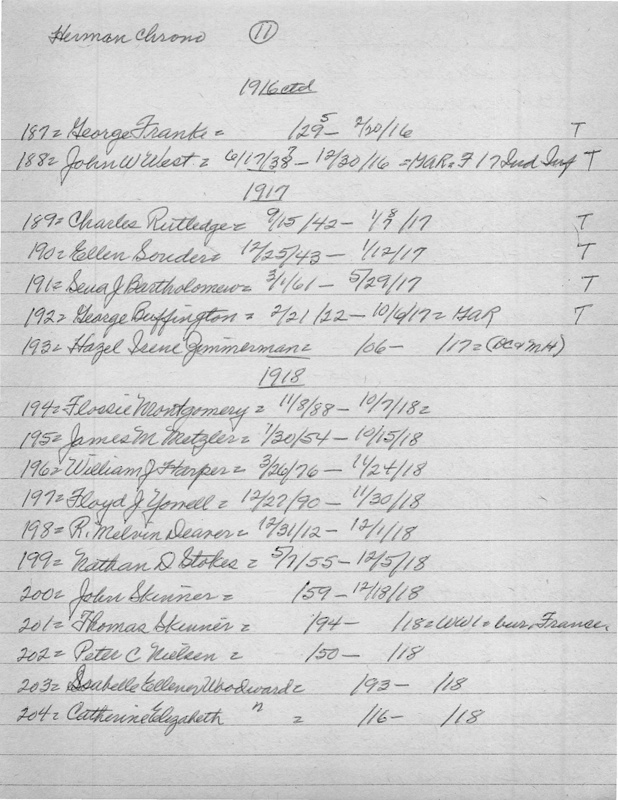 Herman Chrono 11
1916 ctd
187= George Frank= /29 5 - 2/20/16 T
188= John W West= 6/17/38 ? - 12/30/16 = GAR. F 17 Ind Inf T
1917
189= Charles Rutledge= 9/15/42 - 1/7 8/17 T
190= Ellen Souder= 12/25/43 - 1/12/17 T
191= Seua J Bartholomew= 3/1/61 - 5/29/17 T
192= George Buffington= 2/21/22 - 10/6/17= GAR T
193= Hazel Irene Zimmerman= /06- /17= (DC & MH)
1918
194= Flossie Montgomery= 11/8/88 - 10/7/18=
195= James M Metzler= 1/30/54 - 10/15/18
196= William J Harper= 3/26/76 - 11/24/18
197= Floyd J Yowell= 12/27/90 - 11/30/18
198= R. Melvin Deaver= 12/31/12 - 12/1/18
199= Nathan D Stokes= 5/7/55 - 12/5/18
200= John Skinner= /59 - 12/18/18
201= Thomas Skinner= /94- /18= WW1= bur. France.
202= Peter C Nielsen= /50- /18
203= Isabelle Ellener Woodward= /93- /18
204= Catherine Elizabeth " = /16- /18